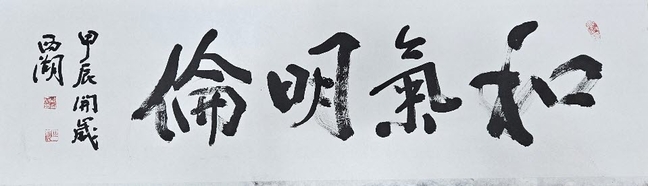 和氣明倫
甲辰開歲
西湖